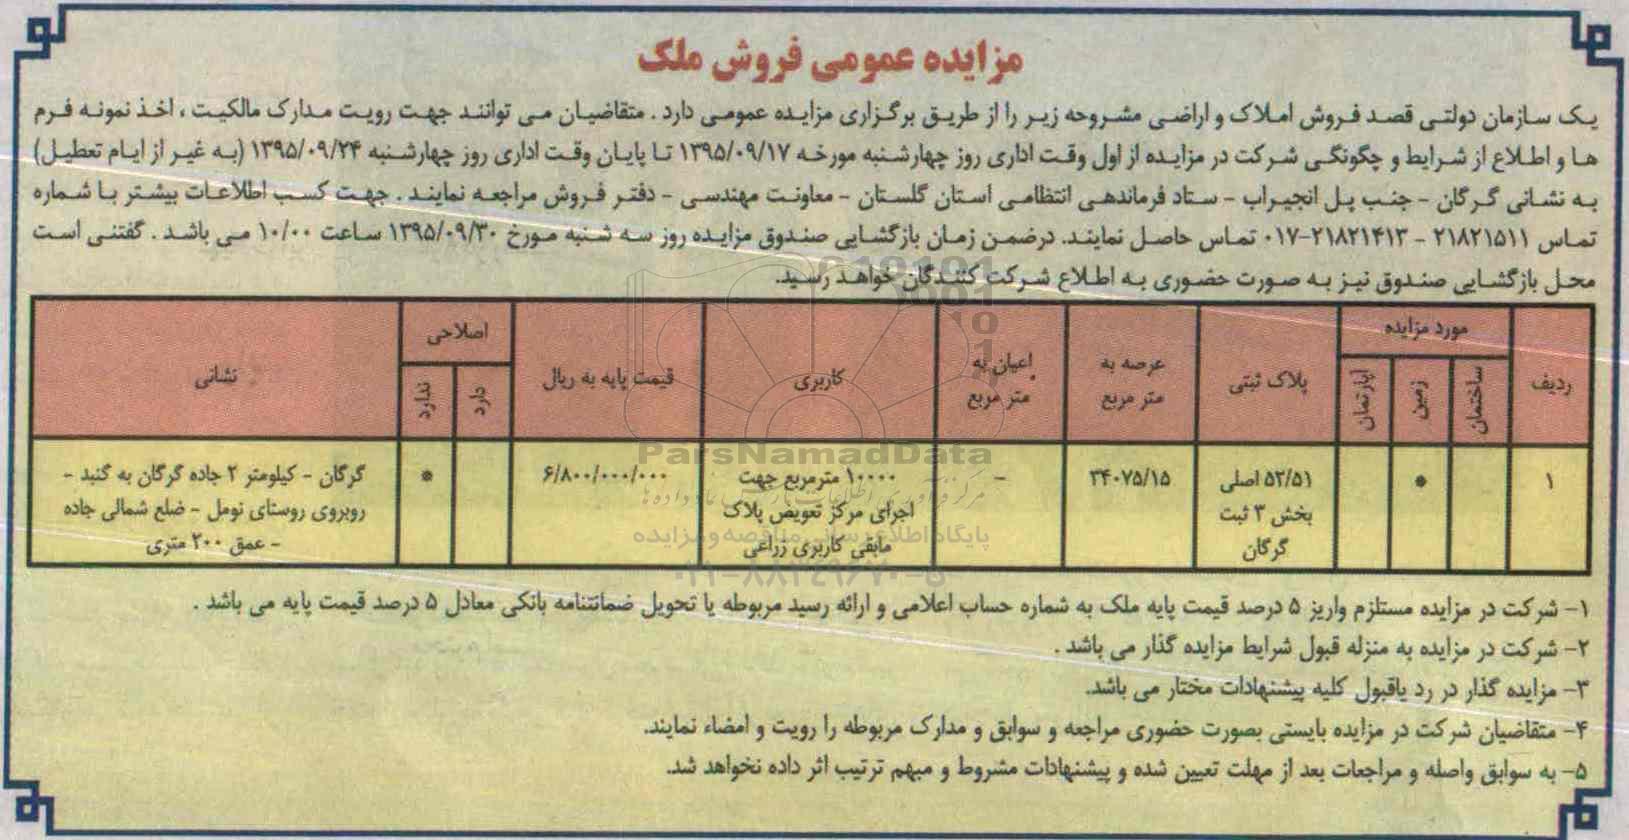 مزایده عمومی فروش ملک
یک سازمان دولتی قصد فروش املاک و اراضی مشروحه زیر را از طریق برگزاری مزایده عمومی دارد . متقاضیان می توانند جهت رویت مدارک مالکیت ، اخذ نمونه فرم
ها و اطلاع از شرایط و چگونگی شرکت در مزایده از اول وقت اداری روز چهارشنبه مورخه ۱۳۹۵/۰۹/۱۷ تا پایان وقت اداری روز چهارشنبه ۱۳۹۵/۰۹/۲۴ (به غیر از ایام تعطیل)
به نشانی گرگان - جنب پل انجیراب - ستاد فرماندهی انتظامی استان گلستان - معاونت مهندسی - دفتر فروش مراجعه نمایند . جهت کسب اطلاعات بیشتر با شماره
تماس ۲۱۸۲۱۵۱۱ - ۲۱۸۲۱۴۱۳-۰۱۷ تماس حاصل نمایند. درضمن زمان بازگشایی صندوق مزایده روز سه شنبه مورخ ۱۳۹۵/۰۹/۳۰ ساعت ۱۰/۰۰ می باشد . گفتنی است
محل بازگشایی صندوق نیز به صورت حضوری به اطلاع شرکت کنندگان خواهد رسید.
ردیف
مورد مزایده
ساختمان
زمین
آپارتمان
پلاک ثبتی
عرصه به
متر مربع
اعیان به
متر مربع
کاربری
قیمت پایه به ریال
اصلاحی
دارد
ندارد
نشانی
۱
*
۵۲/۵۱ اصلی
بخش ۳ ثبت
گرگان
۳۴۰۷۵/۱۵
-
۱۰۰۰۰ مترمربع جهت
اجرای مرکز تعویض پلاک
مابقی کاربری زراعی
۶/۸۰۰/۰۰۰/۰۰۰
*
گرگان - کیلومتر ۲ جاده گرگان به گنبد -
روبروی روستای نومل - ضلع شمالی جاده
- عمق ۲۰۰ متری
ParsNamadData
پایگاه اطلاع رسانی مناقصه و مزایده
۰۲۱-۸۸۳۴۹۶۷۰-۵
۱- شرکت در مزایده مستلزم واریز ۵ درصد قیمت پایه ملک به شماره حساب اعلامی و ارائه رسید مربوطه یا تحویل ضمانتنامه بانکی معادل ۵ درصد قیمت پایه می باشد .
۲- شرکت در مزایده به منزله قبول شرایط مزایده گذار می باشد .
۳- مزایده گذار در رد یاقبول کلیه پیشنهادات مختار می باشد.
۴- متقاضیان شرکت در مزایده بایستی بصورت حضوری مراجعه و سوابق و مدارک مربوطه را رویت و امضاء نمایند.
۵- به سوابق واصله و مراجعات بعد از مهلت تعیین شده و پیشنهادات مشروط و مبهم ترتیب اثر داده نخواهد شد.